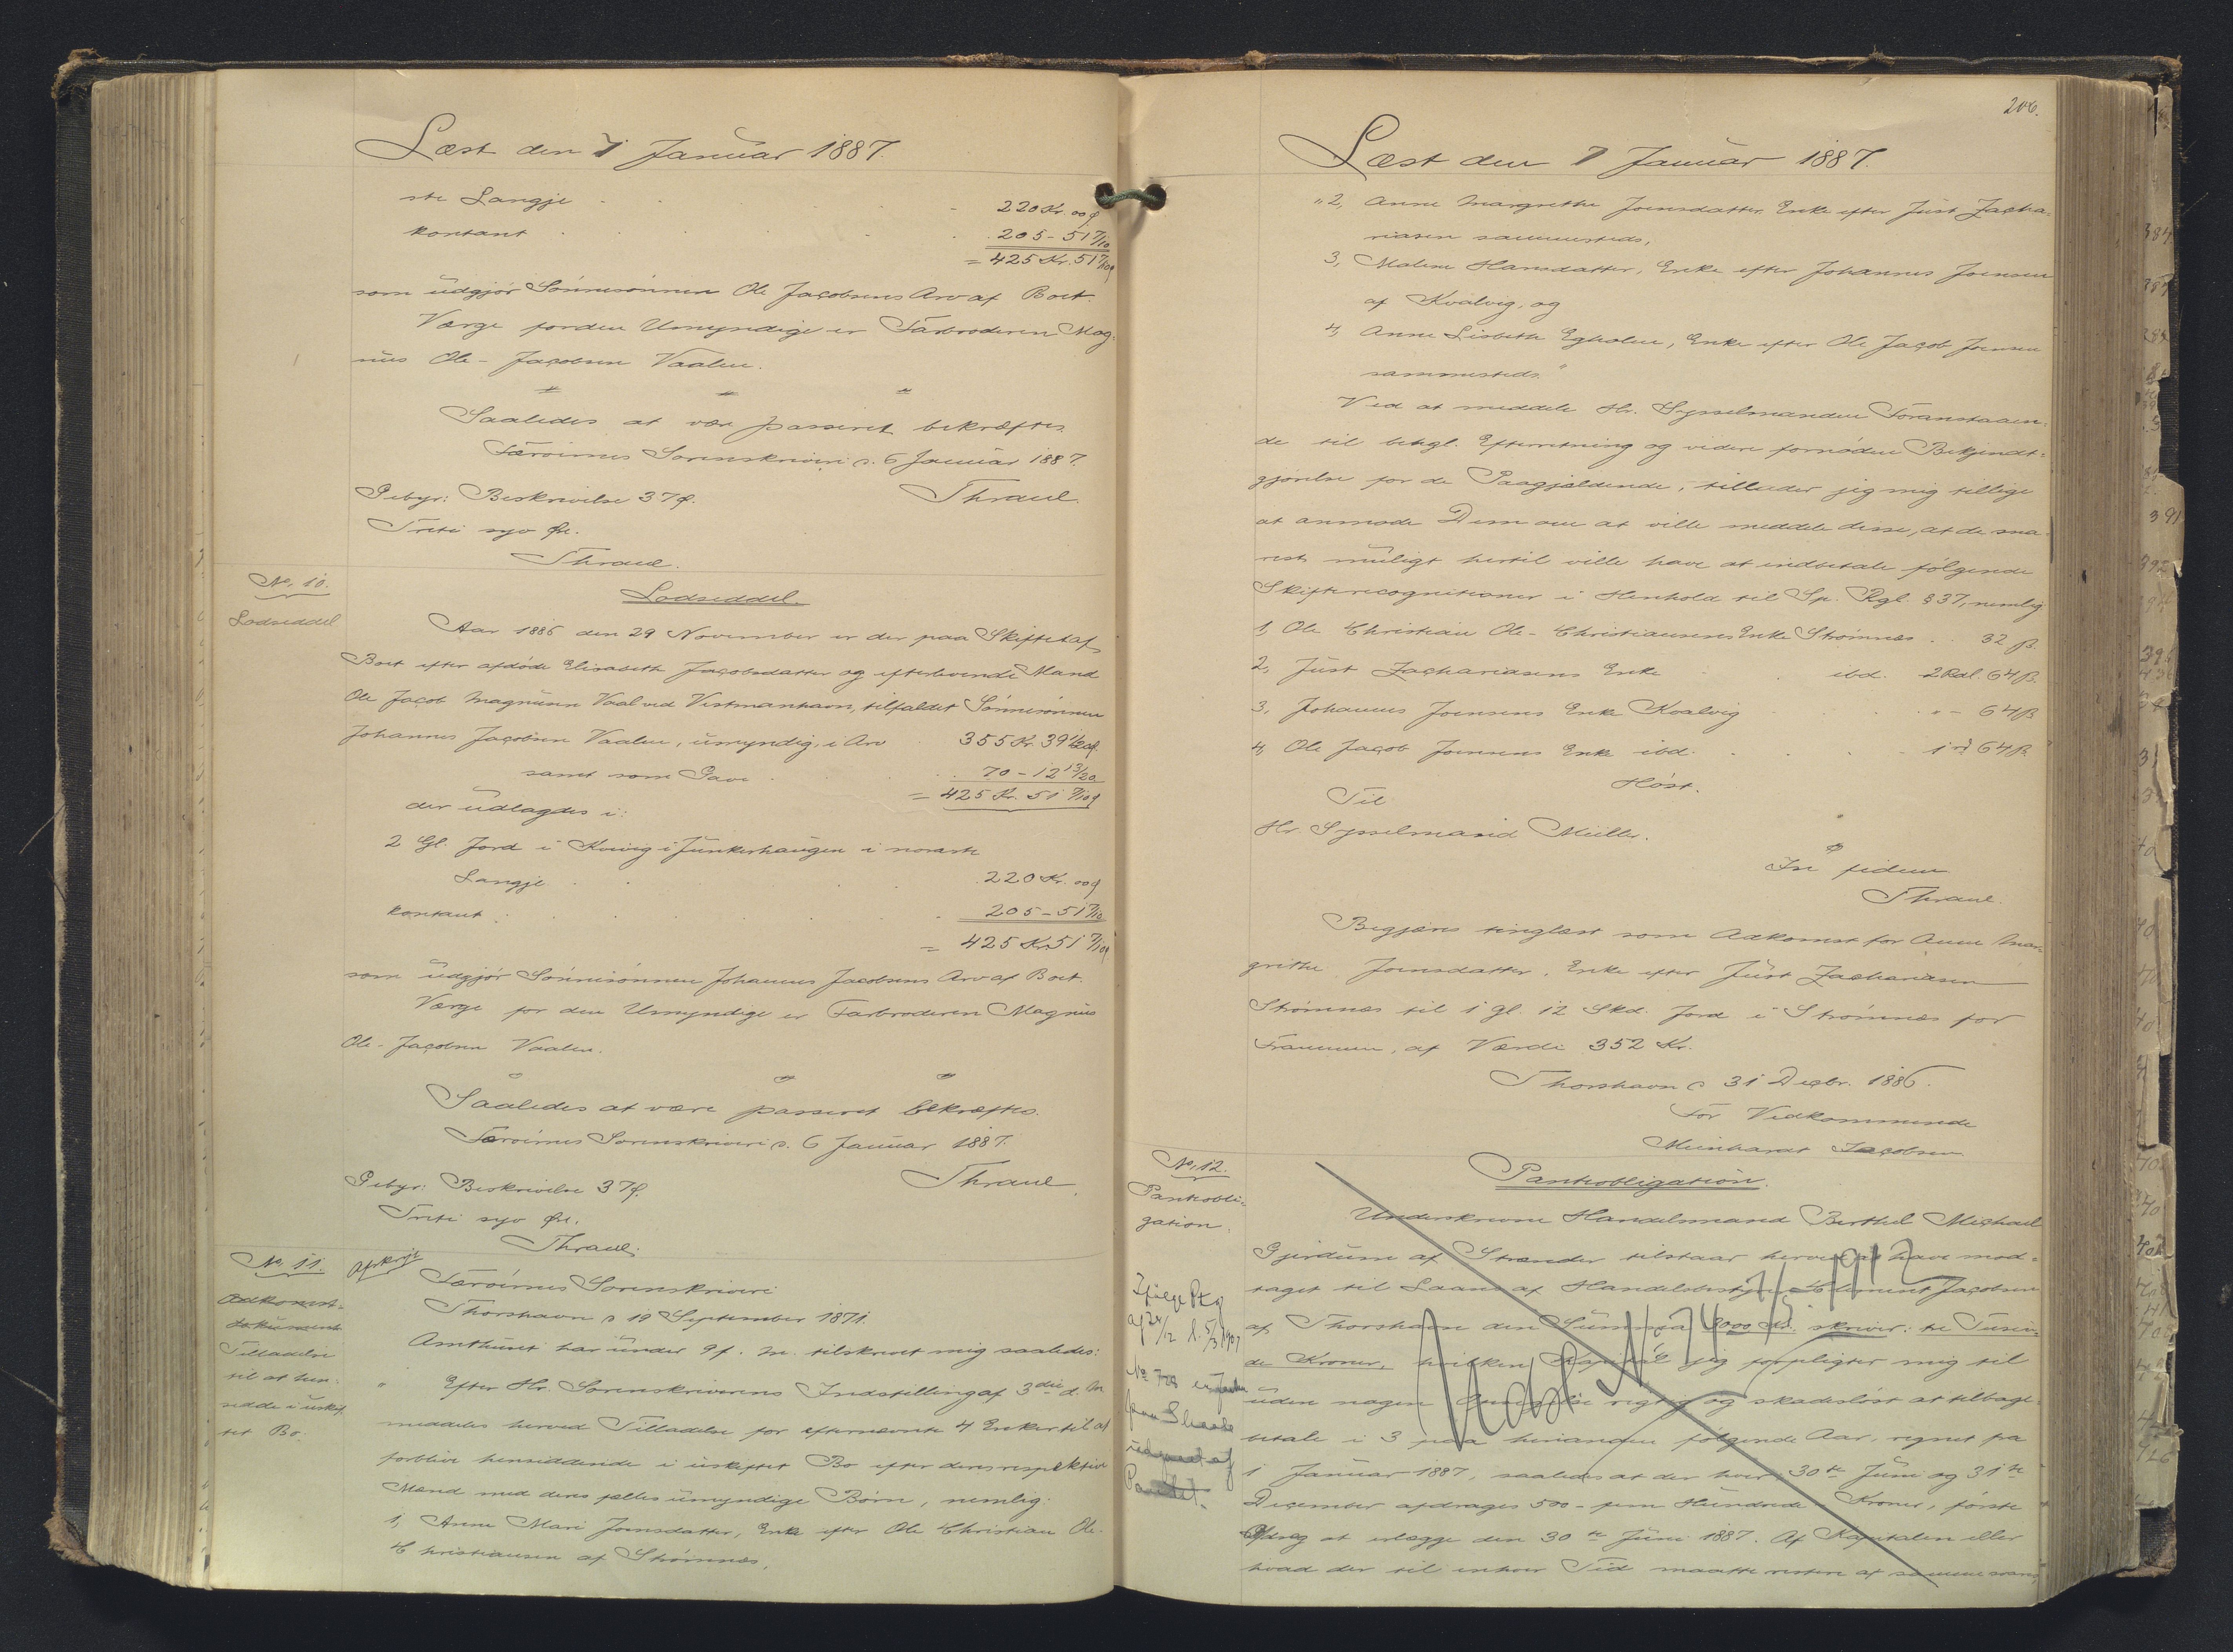 Læst den 7 Januar 1887.
ste Langje 220 Kr. 00 ø
kontant 205 - 51 7/10
= 425 Kr. 51 7/10 ø
som udgjør Sønnesønnen Ole Jacobsens Arv af Boet.
Værge for den Umyndige er Farbroderen Mag-
nus Ole-Jacobsen Vaalen.
Saaledes at være passeret bekræftes.
Færøernes Sorenskriveri d. 6 Januar 1887.
Gebyr: Beskrivelse 37 ø. Thraue.
Treti syv Øre.
Thraue.
No. 10.
Lodseddel
Lodseddel.
Aar 1886 den 29 November er der paa Skiftet af
Boet efter afdøde Elisabeth Jacobsdatter og efterlevende Mand
Ole Jacob Magnussen Vaal ved Vestmanhavn, tilfaldet Sønnesønnen
Johannes Jacobsen Vaalen, umyndig, i Arv 355 Kr. 39 1/20 ø.
samt som Gave 70 - 12 13/20
= 425 Kr. 51 7/10 ø
der udlagdes i:
2 Gl. Jord i Kvivig i Junkerhaugen i noraste
Langje 220 Kr. 00 ø
kontant 205 - 51 7/10
= 425 Kr. 51 7/10 ø
som udgjør Sønnesønnen Johannes Jacobsens Arv af Boet.
Værge for den Umyndige er Farbroderen Magnus
Ole-Jacobsen Vaalen.
Saaledes at være passeret bekræftes.
Færøernes Sorenskriveri d. 6 Januar 1887.
Gebyr: Beskrivelse 37 ø. Thraue.
Treti syv Øre.
Thraue.
No. 11.
Adkomst-
dokument
Tilladelse
til at hen-
sidde i uskif-
tet Bo.
Afskrift
Færøernes Sorenskriveri
Thorshavn d 19 September 1871.
Amthuset har under 9 f. M. tilskrevet mig saaledes:
" Efter Hr. Sorenskriverens Indstilling af 3die d. M.
meddeles herved Tilladelse for efternævnte 4 Enker til at
forblive hensiddende i uskiftet Bo efter deres respektive
Mænd med deres fælles umyndige Børn, nemlig:
1, Anne Mari Joensdatter, Enke efter Ole Christian Ole-
Christiansen af Strømnæs,
206.
Læst den 7 Januar 1887.
"2, Anne Margrethe Joensdatter, Enke efter Just Zacha-
riasen sammesteds,
3, Malene Hansdatter, Enke efter Johannes Joensen
af Kvalvig, og
4, Anne Lisbeth Egholm, Enke efter Ole Jacob Joensen
sammesteds."
Ved at meddele Hr. Sysselmanden Foranstaaen-
de til behgl. Efterretning og videre fornøden Bekjendt-
gjørelse for de Paagjældende, tillader jeg mig tillige
at anmode Dem om at ville meddele disse, at de sna-
rest muligt hertil ville have at indbetale følgende
Skifterecognitioner i Henhold til Sp. Rgl. § 37, nemlig
1, Ole Christian Ole-Christiansens Enke Strømnæs 32 ß.
2, Just Zachariasens Enke ibd. 2 Rdl. 64 ß.
3, Johannes Joensens Enke Kvalvig " - 64 ß
4, Ole Jacob Joensens Enke ibd. 1 rd 64 ß.
Høst.
Til
Hr. Sysselmand Müller.
In fidem
Thraue.
Begjæres tinglæst som Adkomst for Anne Mar-
grethe Joensdatter, Enke efter Just Zachariasen
Strømnæs til 1 gl. 12 Skd. Jord i Strømnæs for
Frammen, af Værdi 352 Kr.
Thorshavn d 31 Decbr. 1886.
For Vedkommende
Meinhardt Jacobsen
No. 12.
Pantobli-
gation.
Pantobligation.
Underskrevne Handelsmand Berthel Michael
Gjerdum af Strænder tilstaar herved at have mod-
taget til Laans af Handelsbestyrer Clement Jacobsen
af Thorshavn den Summa 3000 Kr. skriver: tre Tusin-
de Kroner, hvilken Kapital jeg forpligter mig til
uden nogen Opsigelse rigtig og skadesløst at tilbage-
betale i 3 paa hinanden følgende Aar, regnet fra
1 Januar 1887, saaledes at der hver 30te Juni og 31te
December afdrages 500 - fem Hundrede - Kroner, første
Afdrag at erlægge den 30te Juni 1887. Af Kapitalen eller
hvad der til enhver Tid maatte restere af samme svares
Ifølge Ptg
af 24/12 l. 5/3 1907
Udsl. N. 74 7/5 1912